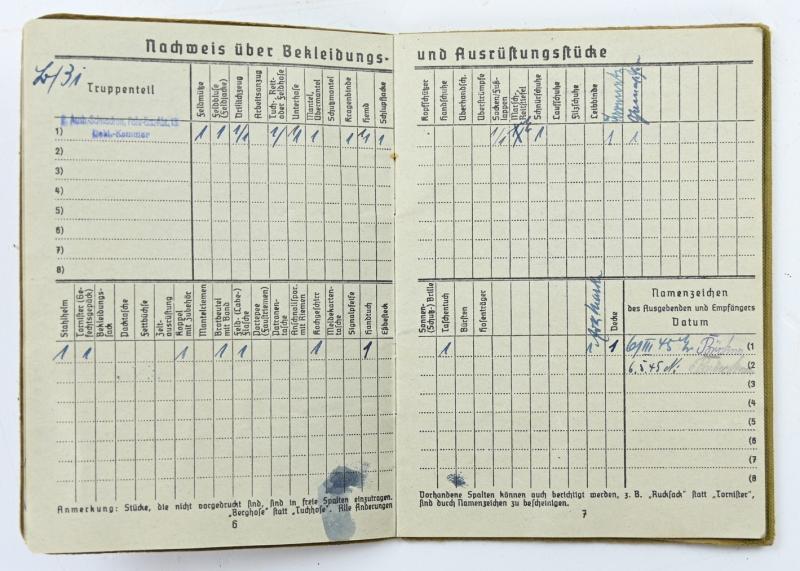 Nachweis über Bekleidungs-
Truppenteil
Feldmütze
Feldbluse (Feldjacke)
Drillichzeug
Arbeitsanzug
Tuch-, Reit- oder Feldhose
Unterhose
Mantel, Übermantel
Schutzmantel
Kragenbinde
Hemd
Schlupfjacke
1)
1 1 1/1 1/1 1 1 1
2)
3)
4)
5)
6)
7)
8)
Stahlhelm
Tornister (Ge-fechtsgepäck)
Bekleidungs-sack
Packtasche
Fettbüchse
Zelt-ausrüstung
Koppel mit Zubehör
Mantelriemen
Brotbeutel mit Band
Feld- (Labe-) flasche
Patronen-tasche
Anschnallspor. mit Riemen
Kochgeschirr
Meldekarten-tasche
Signalpfeife
Handtuch
Eßbesteck
1 1 1 1 1 1 1
Anmerkung: Stücke, die nicht vorgedruckt sind, sind in freie Spalten einzutragen.
„Berghose" statt „Tuchhose". Alle Änderungen
6
und Ausrüstungsstücke
Kopfschützer
Handschuhe
Überhandsch.
Überstrümpfe
Socken/Fuß-lappen
Marsch-, Reitstiefel
Schnürschuhe
Laufschuhe
Filzschuhe
Leibbinde
1/1 1 1 1
Sonnen- (Schutz-) Brille
Taschentuch
Bürsten
Hosenträger
Decke
Namenzeichen
des Ausgebenden und Empfängers
Datum
1 1 1 6/III 45 (1
6.5.45 (2
(3
(4
(5
(6
(7
(8
Vorhandene Spalten können auch berichtigt werden, z. B. „Rucksack" statt „Tornister",
sind durch Namenzeichen zu bescheinigen.
7